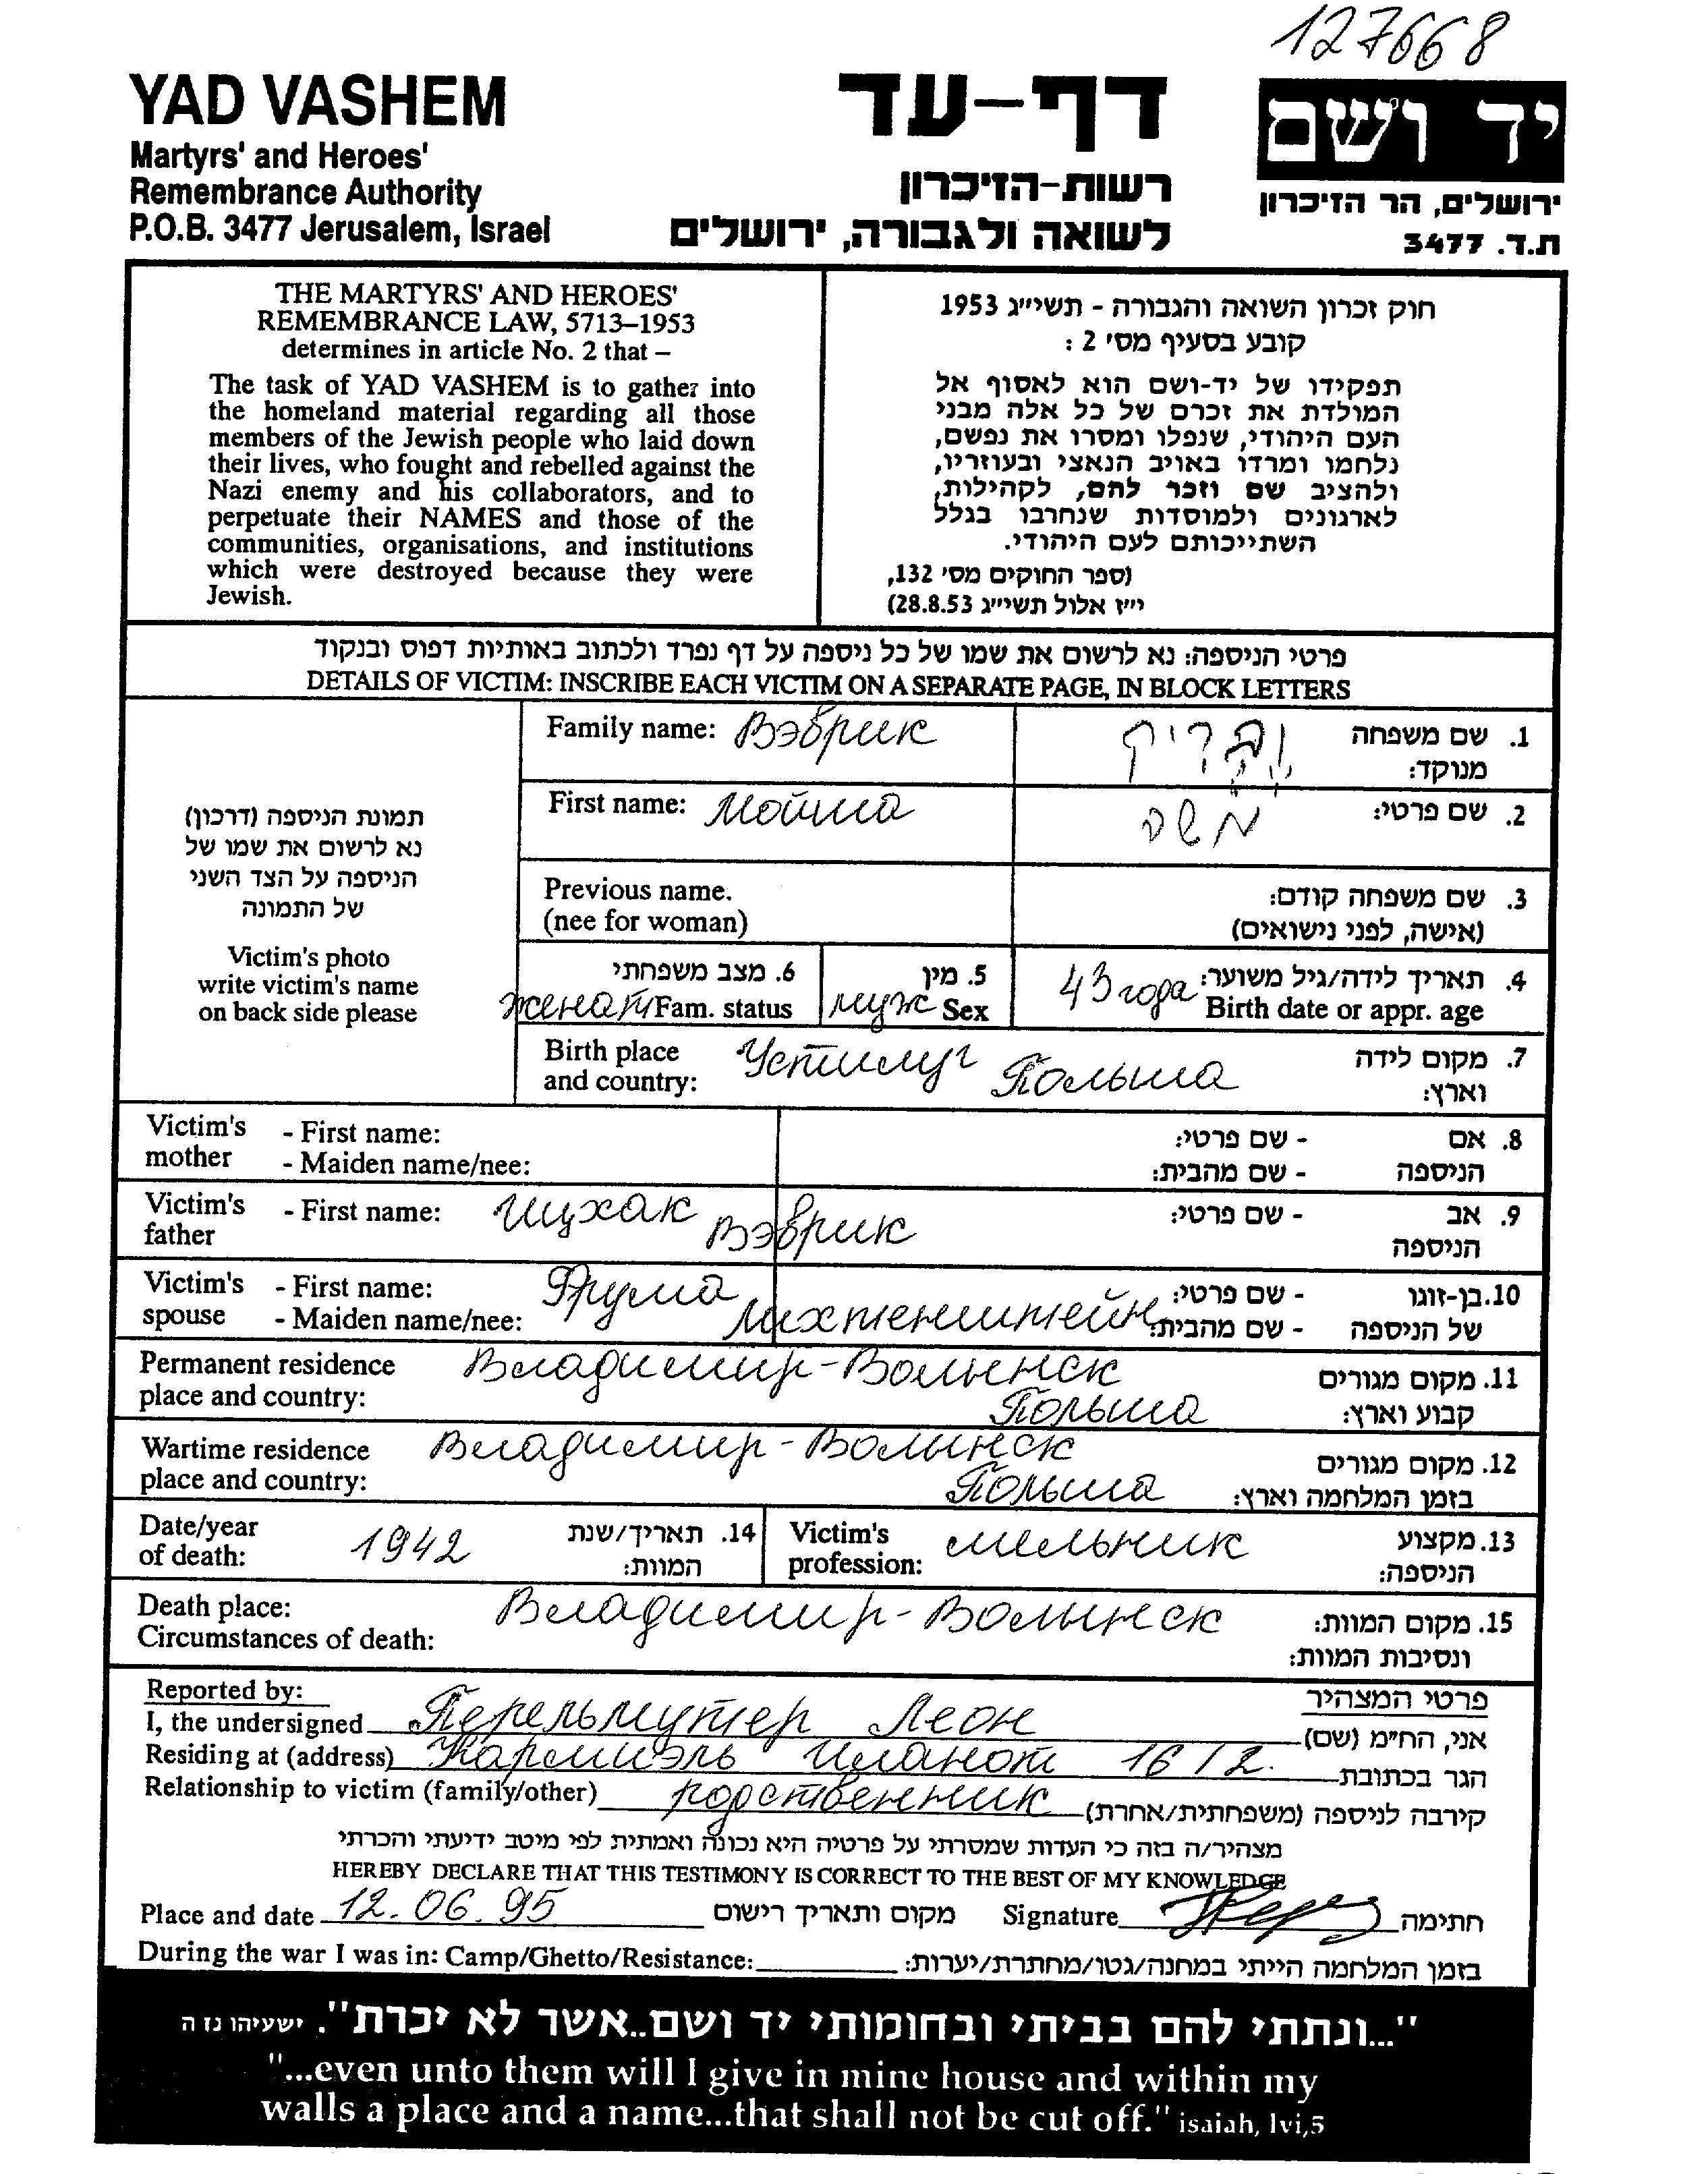 127668
YAD VASHEM
Martyrs' and Heroes'
Remembrance Authority
P.O.B. 3477 Jerusalem, Israel
דף-עד
רשות-הזיכרון
לשואה ולגבורה, ירושלים
יד ושם
ירושלים, הר הזיכרון
ת.ד. 3477
THE MARTYRS' AND HEROES'
REMEMBRANCE LAW, 5713–1953
determines in article No. 2 that –
The task of YAD VASHEM is to gather into
the homeland material regarding all those
members of the Jewish people who laid down
their lives, who fought and rebelled against the
Nazi enemy and his collaborators, and to
perpetuate their NAMES and those of the
communities, organisations, and institutions
which were destroyed because they were
Jewish.
חוק זכרון השואה והגבורה - תשי"ג 1953
קובע בסעיף מס' 2 :
תפקידו של יד-ושם הוא לאסוף אל
המולדת את זכרם של כל אלה מבני
העם היהודי, שנפלו ומסרו את נפשם,
נלחמו ומרדו באויב הנאצי ובעוזריו,
ולהציב שם וזכר להם, לקהילות,
לארגונים ולמוסדות שנחרבו בגלל
השתייכותם לעם היהודי.
(ספר החוקים מס' 132,
י"ז אלול תשי"ג 28.8.53)
פרטי הניספה: נא לרשום את שמו של כל ניספה על דף נפרד ולכתוב באותיות דפוס ובנקוד
DETAILS OF VICTIM: INSCRIBE EACH VICTIM ON A SEPARATE PAGE, IN BLOCK LETTERS
תמונת הניספה (דרכון)
נא לרשום את שמו של
הניספה על הצד השני
של התמונה
Victim's photo
write victim's name
on back side please
Family name: Вэврик
ובריק
1. שם משפחה
מנוקד:
First name: Мойша
משה
2. שם פרטי:
Previous name.
(nee for woman)
3. שם משפחה קודם:
(אישה, לפני נישואים)
6. מצב משפחתי
женат Fam. status
5. מין
муж Sex
4. תאריך לידה/גיל משוער:
43 года Birth date or appr. age
Birth place
and country: Устилуг Польша
7. מקום לידה
וארץ:
Victim's mother - First name:
- Maiden name/nee:
8. אם הניספה - שם פרטי:
- שם מהבית:
Victim's father - First name: Ицхак Вэврик
9. אב הניספה - שם פרטי:
Victim's spouse - First name: Фрума
- Maiden name/nee: Лихтенштейн
10. בן-זוגו של הניספה - שם פרטי:
- שם מהבית:
Permanent residence
place and country: Владимир-Волынск
Польша
11. מקום מגורים
קבוע וארץ:
Wartime residence
place and country: Владимир-Волынск
Польша
12. מקום מגורים
בזמן המלחמה וארץ:
Date/year
of death: 1942
14. תאריך/שנת
המוות:
Victim's
profession: мельник
13. מקצוע
הניספה:
Death place:
Circumstances of death: Владимир-Волынск
15. מקום המוות:
ונסיבות המוות:
Reported by:
פרטי המצהיר
I, the undersigned Перельмутер Леон אני, הח"מ (שם)
Residing at (address) Кармиэль Иланот 16/2. הגר בכתובת
Relationship to victim (family/other) родственник קירבה לניספה (משפחתית/אחרת)
מצהיר/ה בזה כי העדות שמסרתי על פרטיה היא נכונה ואמתית לפי מיטב ידיעתי והכרתי
HEREBY DECLARE THAT THIS TESTIMONY IS CORRECT TO THE BEST OF MY KNOWLEDGE
Place and date 12.06.95 מקום ותאריך רישום Signature חתימה
During the war I was in: Camp/Ghetto/Resistance: בזמן המלחמה הייתי במחנה/גטו/מחתרת/יערות:
"...ונתתי להם בביתי ובחומותי יד ושם..אשר לא יכרת". ישעיהו נז ה
"...even unto them will I give in mine house and within my
walls a place and a name...that shall not be cut off." isaiah, lvi,5